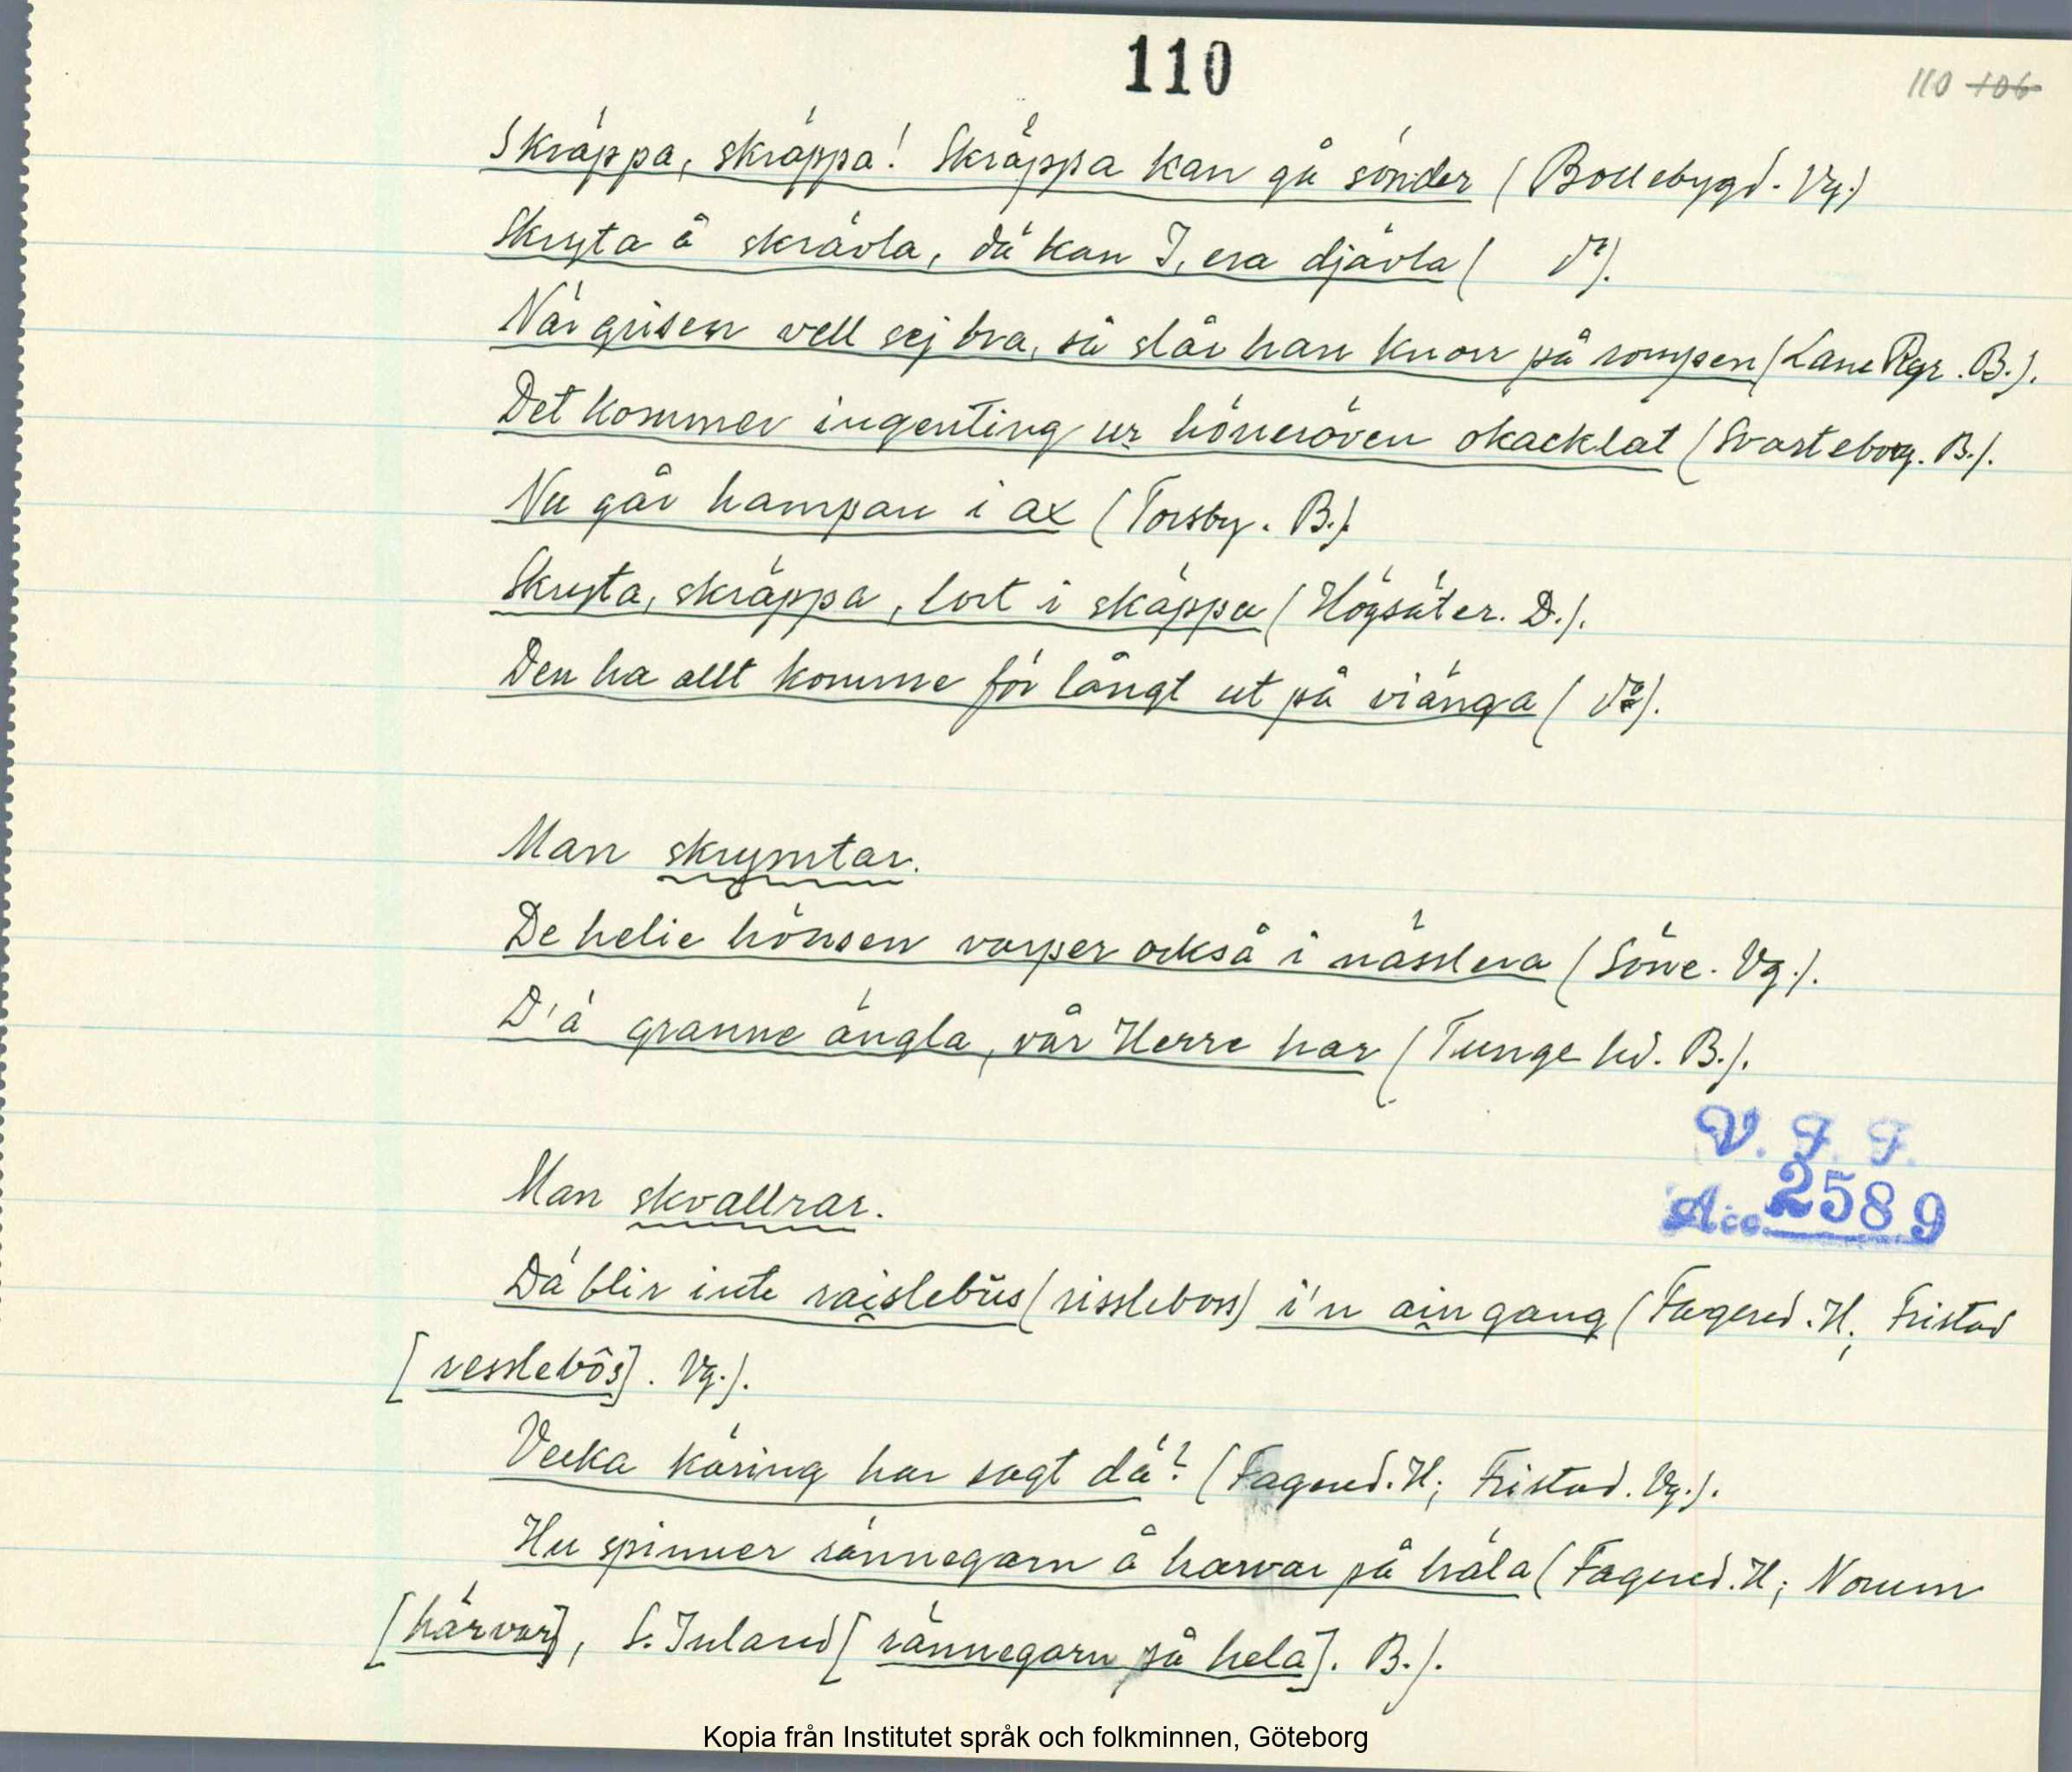 110
110 106
Skräppa, skräppa! Skräppa kan gå sönder (Bollebygd. Vg.)
Skryta å skrävla, dä kan I, era djävla ( do).
När grisen vell sej bra, så slår han knorr på rompen (Lane Rgr. B.).
Det kommer ingenting ur höneröven okacklat (Svarteborg. B.).
Nu går hampan i ax (Torsby. B.).
Skryta, skräppa, lort i skäppa (Högsäter. D.).
Den ha allt komme för långt ut på viänga (do).
Man skrymtar.
De helie hönsen varper också i nässlera (Söne. Vg.).
D'ä granne ängla, vår Herre har (Tunge hd. B.).
V. F. F.
Acc. 2589
Man skvallrar.
Dä blir inte raislebûs (rissleboss) i'n ain gang (Fagered. H; Fristad
[resslebôs]. Vg.).
Vecka käring har sagt dä? (Fagered. H; Fristad. Vg.).
Hu spinner rännegarn å harvar på häla (Fagered. H; Norum
[härvar], S. Inland [rännegarn på hela]. B.).
Kopia från Institutet språk och folkminnen, Göteborg